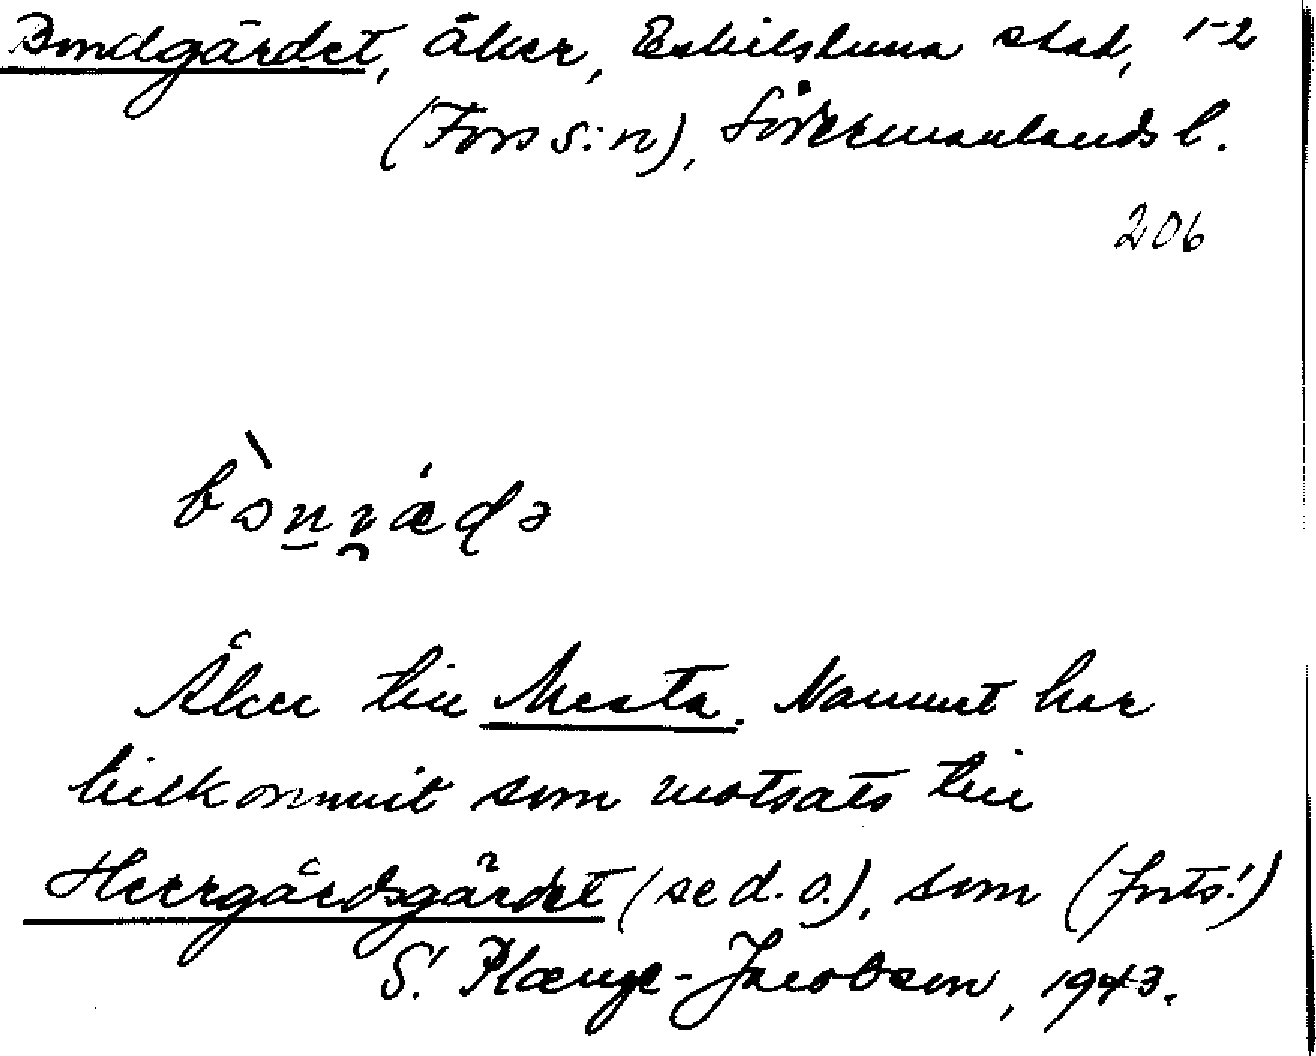 Bondgärdet, åker, Eskilstuna stad, 1-2
(Fors s:n), Södermanlands l.
206
Åker till Mesta. Namnet har
tillkommit som motsats till
Herrgårdsgärdet (se d. o.), som (forts!)
S. Plænge-Jacobson, 1943.